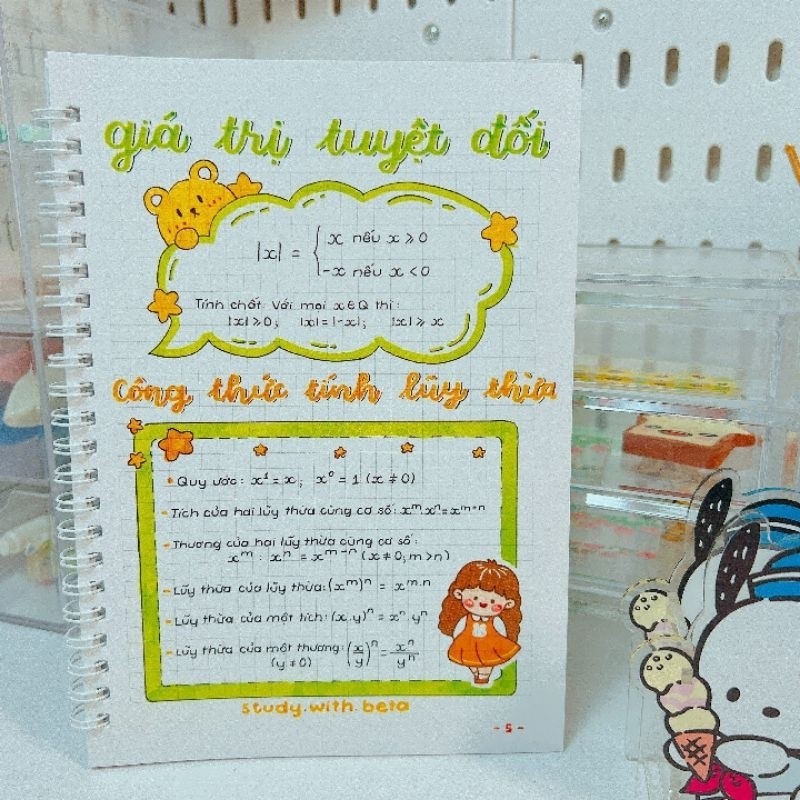 giá trị tuyệt đối
|x| = { x nếu x ⩾ 0
-x nếu x < 0
Tính chất: Với mọi x ∈ Q thì:
|x| ⩾ 0; |x| = |-x|; |x| ⩾ x
Công thức tính lũy thừa
Quy ước: x¹ = x; x⁰ = 1 (x ≠ 0)
- Tích của hai lũy thừa cùng cơ số: xᵐ.xⁿ = xᵐ⁺ⁿ
- Thương của hai lũy thừa cùng cơ số:
xᵐ : xⁿ = xᵐ⁻ⁿ (x ≠ 0, m > n)
- Lũy thừa của lũy thừa: (xᵐ)ⁿ = xᵐ·ⁿ
- Lũy thừa của một tích: (x.y)ⁿ = xⁿ.yⁿ
- Lũy thừa của một thương: (x/y)ⁿ = xⁿ/yⁿ
(y ≠ 0)
study.with.beta
- 5 -